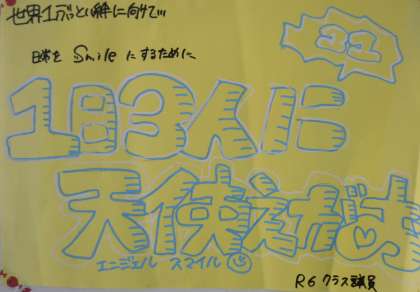 世界1ぶっとい絆に向けて…
22
日常を Smile にするために
1日3人に
天使えがお
エンジェル スマイル
R6 クラス議員